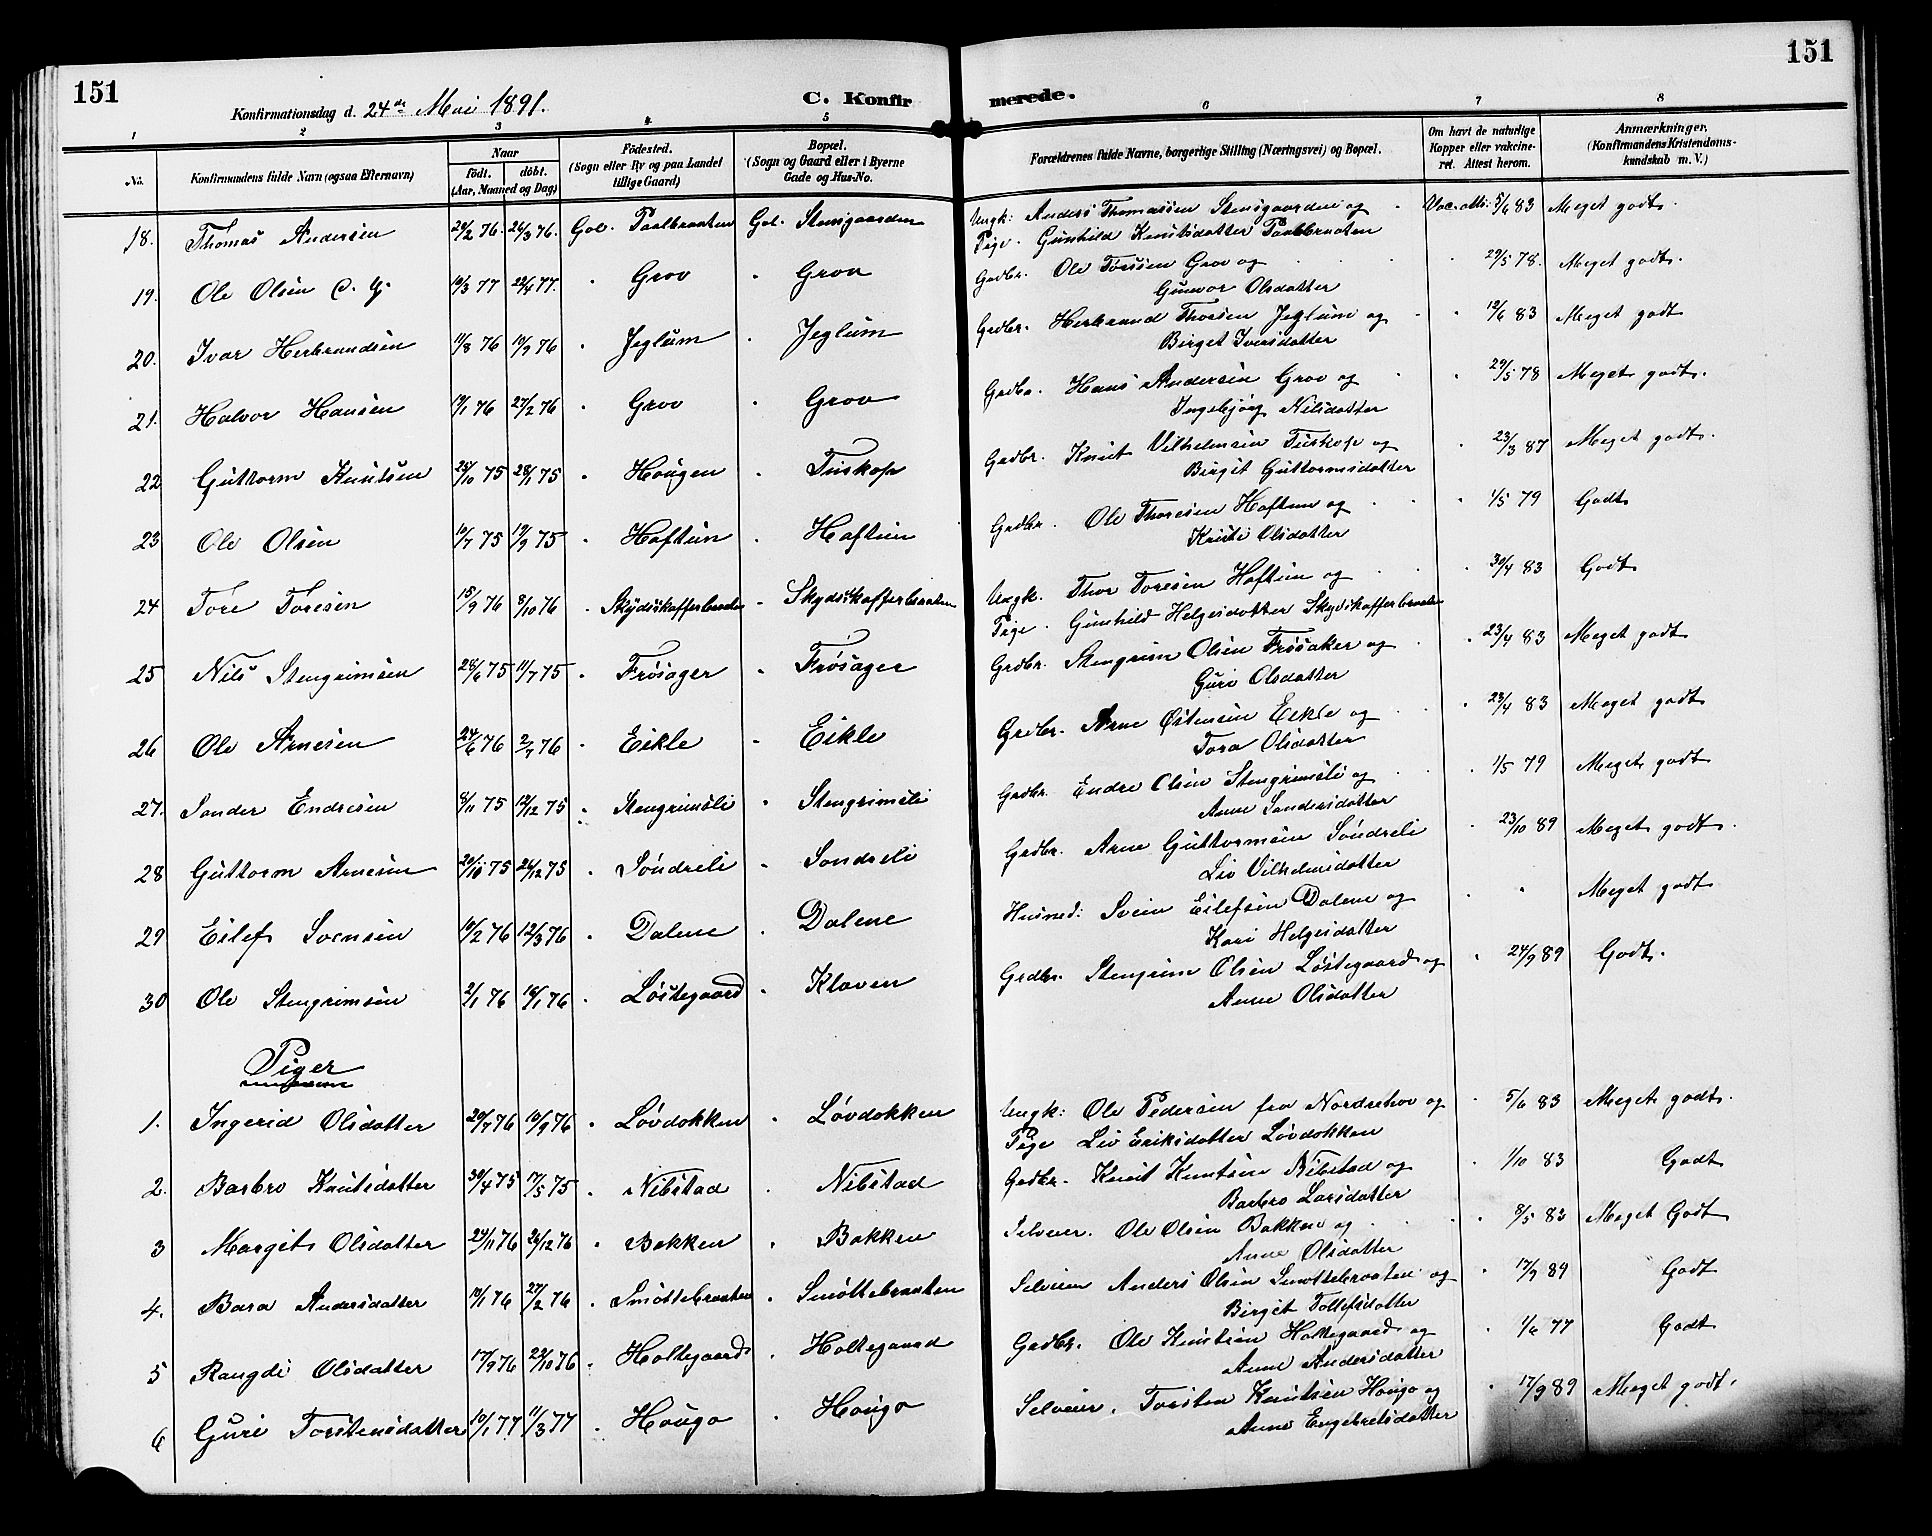 151
151
Konfirmationsdag d. 24de Mai 1891.
C. Konfirmerede.
1 2 3 4 5 6 7 8
No. Konfirmandens fulde Navn (ogsaa Efternavn) Naar født. døbt. (Aar, Maaned og Dag) Fødested. (Sogn eller By og paa Landet tillige Gaard) Bopæl. (Sogn og Gaard eller i Byerne Gade og Hus-No. Forældrenes fulde Navne, borgerlige Stilling (Næringsvei) og Bopæl. Om havt de naturlige Kopper eller vakcineret. Attest herom. Anmærkninger. (Konfirmandens Kristendomskundskab m. V.)
18. Thomas Andersen 26/3 76. Gol. Paalbraaten Gol. Stensgaarden Ungk: Anders Thomassen Stensgaarden og Vac. att: 5/6 83 Meget godt.
Pige. Gunhild Knutsdatter Paalbraaten
19. Ole Olsen 10/3 77 22/4 77. " Grov " Grov Grdbr. Ole Torssen Grov og 29/5 78. Meget godt.
Gunvor Olsdatter
20. Ivar Herbrandsen 11/8 76 10/9 76 " Jeglum " Jeglum Grdbr. Herbrand Thorsen Jeglum og 12/6 83 Meget godt
Birget Iversdatter
21. Halvor Hansen 19/1 76 27/2 76 " Grov " Grov Grdbr. Hans Andersen Grov og 29/5 78 Meget godt.
Ingebjørg Nilsdatter
22 Guttorm Knutsen 28/10 75 28/11 75 " Hougen " Tuskop Grdbr. Knut Vilhelmsen Tuskop og 23/3 87 Meget godt.
Birgit Guttormsdatter
23 Ole Olsen 10/7 75 19/9 75 " Haftun " Haftun Grdbr. Ole Thoresen Haftun og 1/5 79 Godt
Kristi Olsdatter
24 Tore Toresen 15/9 76 8/10 76 " Skydskafferbraaten " Skydskafferbraaten Ungk. Thor Toresen Haftun og 30/4 83 Godt
Pige. Gunhild Helgesdatter Skydskafferbraaten
25 Nils Stengrimsen 28/6 75 11/7 75 " Frøsager " Frøsager Grdbr. Stengrim Olsen Frøsaker og 23/4 83 Meget godt
Guri Olsdatter
26 Ole Arnesen 24/6 76 2/7 76 " Eikle " Eikle Grdbr. Arne Østensen Eikle og 23/4 83 Meget godt
Tora Olsdatter
27. Sander Endresen 8/11 75 12/12 75 " Stengrimsli " Stengrimsli Grdbr. Endre Olsen Stengrimsli og 1/5 79 Meget godt
Anne Sandersdatter
28 Guttorm Arnesen 20/10 75 26/12 75 " Søndreli " Sondreli Grdbr. Arne Guttormsen Søndreli 23/10 89 Meget godt.
Liv Vilhelmsdatter
29 Eilef Svensen 10/2 76 12/3 76 " Dalene " Dalene Husmd: Svein Eilefsen Dalene og " Meget godt
Kari Helgesdatter
30 Ole Stengrimsen 2/1 76 16/1 76 " Løstegaard " Kloven Grdbr. Stengrim Olsen Løstegaard og 24/9 89 Godt.
Anne Olsdatter
Piger
1. Ingerid Olsdatter 20/7 76 10/9 76 " Løvdokken " Løvdokken Ungk: Ole Pedersen fra Nordrehov og 5/6 83 Meget godt.
Pige Liv Eriksdatter Løvdokken
2. Barbro Knutsdatter 30/4 75 17/5 75 " Nibstad " Nibstad Grdbr. Knut Knutsen Nibstad og 1/10 83 Godt
Barbro Larsdatter
3 Margit Olsdatter 24/11 76 26/12 76 " Bakken " Bakken Selveier. Ole Olsen Bakken og 8/5 83 Meget Godt
Anne Olsdatter
4. Bara Andersdatter 10/1 76 27/2 76 " Smøttebraaten " Smøttebraaten Selveier Anders Olsen Smøttebraaten og 17/9 89 Godt
Birgit Tollefsdatter
5 Rangdi Olsdatter 17/9 76 22/10 76 " Holtegaard " Holtegaard Grdbr. Ole Knutsen Holtegaard og 1/6 77 Godt
Anne Andersdatter
6 Guri Torstensdatter 10/1 77 11/3 77 " Hougo " Hougo Selveier. Torsten Knutsen Hougo og 17/9 89 Meget godt.
Anne Engebretsdatter